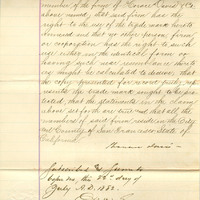 member of the firm of
above named; that said firm has the
right to the use of the trade mark
; that no other person, firm
or corporation has the right to such
use, either in the identical form or
having such near resemblance thereto
as might be calculated to deceive; that
the copy presented for record truly rep-
resents the trade mark sought to be pro-
tected; that the statements in the claim
above set forth are true and that all the
members of said firm reside in the City
and County of San Francisco, State of
California.
Subscribed &
before me, this day of
July A.D. 1882.